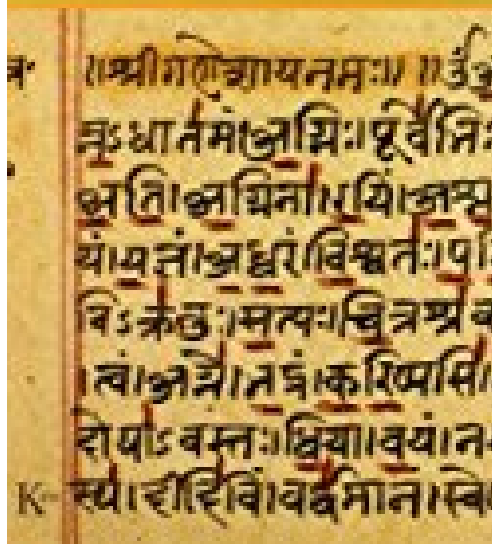 ॥श्रीगणेशायनमः॥ ॥उँ
त्नऽधातमं॥अग्निः।पूर्वेभिः
क्षति।अग्निना।रयिं।अश्न
यं।यज्ञं।अध्वरं।विश्वतः।परि
विऽक्रतुः।सत्यः।चित्रश्रव
।त्वं।अग्ने।भद्रं।करिष्यसि।
दोषाऽवस्तः।धिया।वयं।न
K- स्य।दीदिविं।वर्द्धमानं।स्वे